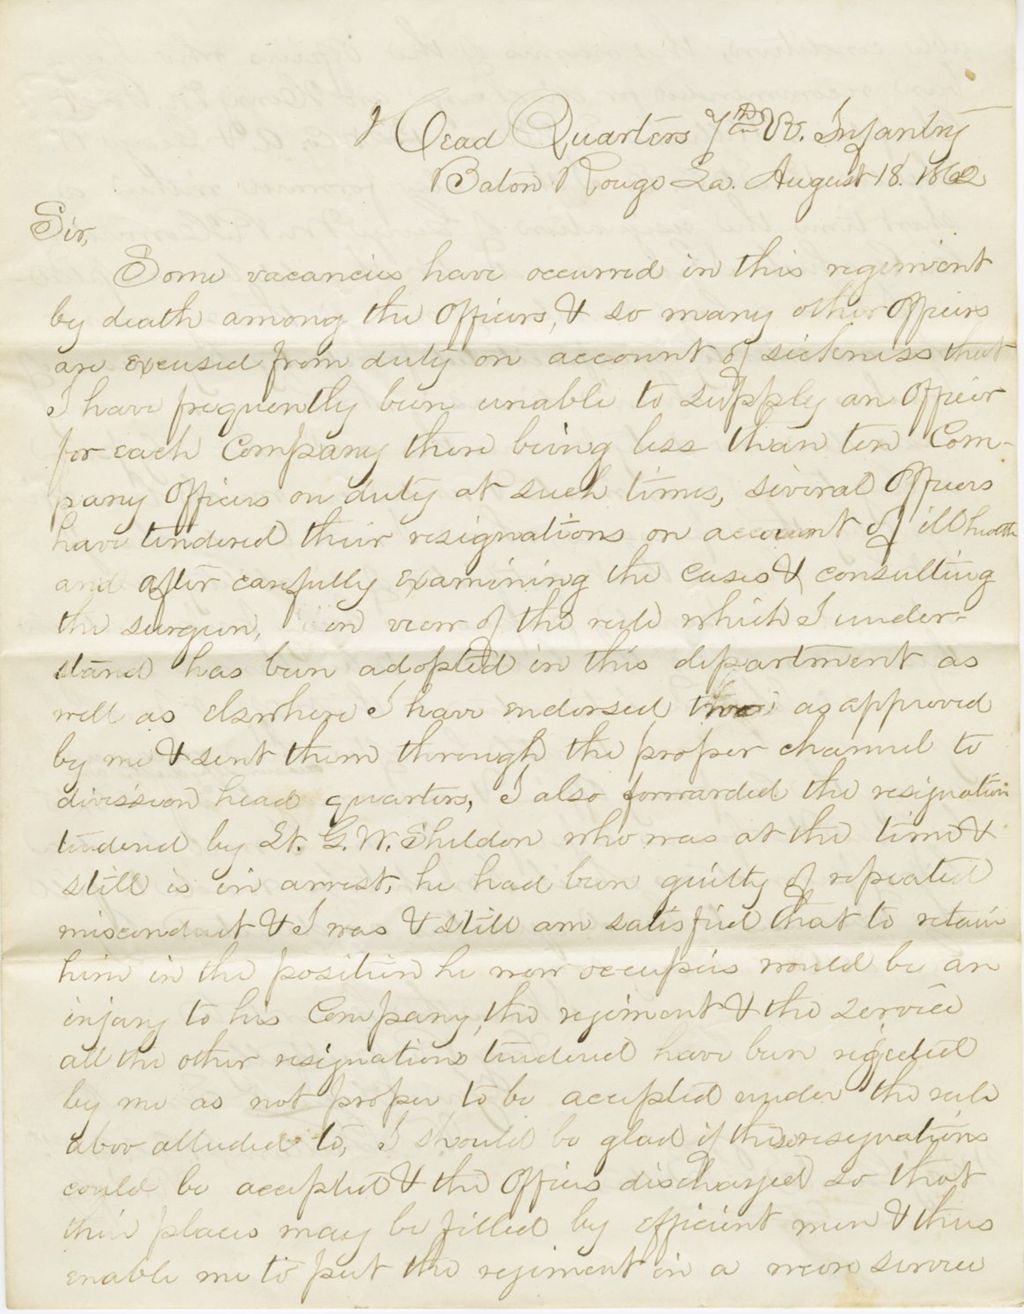 Head Quarters 7th Vt. Infantry
Baton Rouge La. August 18. 1862
Sir,
Some vacancies have occurred in this regiment
by death among the Officers, & so many other Officers
are excused from duty on account of sickness that
I have frequently been unable to supply an Officer
for each Company there being less than ten Com-
pany Officers on duty at such times, several Officers
have tendered their resignations on account of ill health
and after carefully examining the cases & consulting
the surgeon, on view of the rule which I under-
stand has been adopted in this department as
well as elsewhere I have endorsed two as approved
by me & sent them through the proper channel to
division head quarters, I also forwarded the resignation
tendered by Lt. G. W. Sheldon who was at the time &
still is in arrest, he had been guilty of repeated
misconduct & I was & still am satisfied that to retain
him in the position he now occupies would be an
injury to his Company, the regiment & the service
all the other resignations tendered have been rejected
by me as not proper to be accepted under the rule
abov alluded to, I should be glad if these resignations
could be accepted & the Officers discharged so that
their places may be filled by efficient men & thus
enable me to put the regiment in a more servic